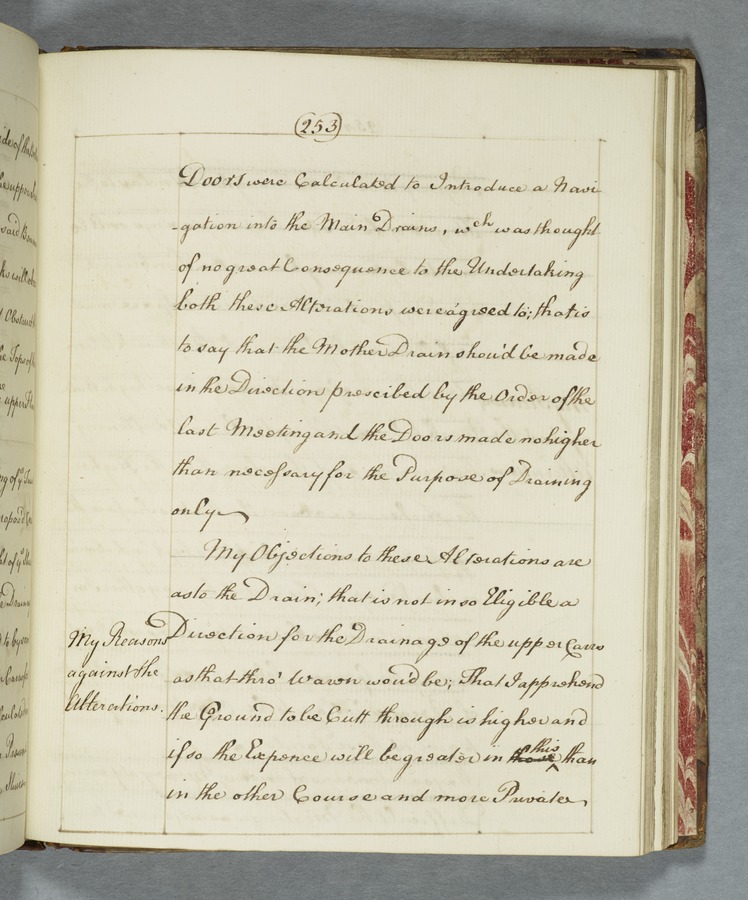 253
Doors were Calculated to Introduce a Navi
-gation into the Main Drains, wch was thought
of no great Consequence to the Undertaking
both these Alterations were agreed to; that is
to say that the Mother Drain shou'd be made
in the Direction prescibed by the Order of the
last Meeting and the Doors made no higher
than necessary for the Purpose of Draining
only
My Objections to these Alterations are
as to the Drain; that is not in so Eligible a
My Reasons
against the
Alterations.
Direction for the Drainage of the upper Carrs
as that thro' Waren wou'd be; That I apprehend
the Ground to be Cutt through is higher and
if so the Expence will be greater in this than
in the other Course and more Private